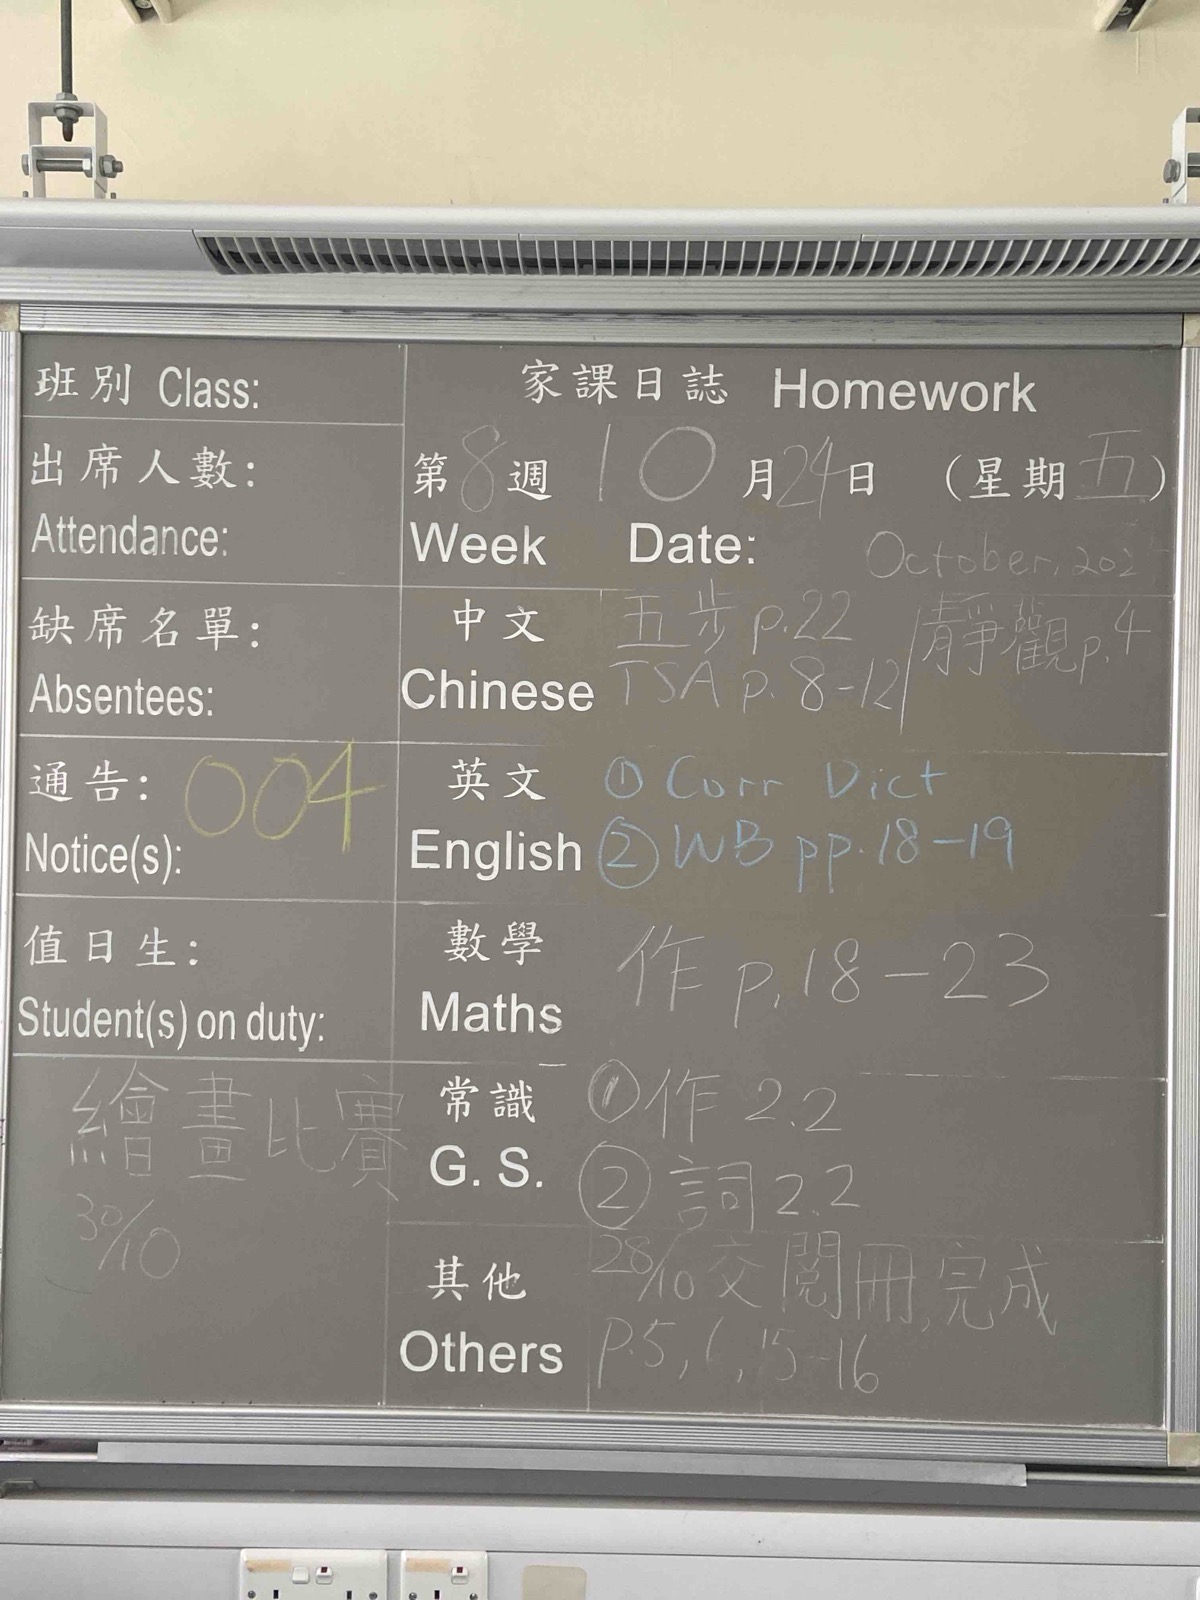 班別 Class:
出席人數:
Attendance:
缺席名單:
Absentees:
通告: 004
Notice(s):
值日生:
Student(s) on duty:
繪畫比賽
30/10
家課日誌 Homework
第8週 10月24日 (星期五)
Week Date: October, 202
中文 五步 p.22 / 靜觀 p.4
Chinese TSA p. 8-12
英文 ① Corr Dict
English ② WB pp.18-19
數學 作 p.18-23
Maths
常識 ① 作 2.2
G. S. ② 詞 2.2
其他 28/10 交閱冊,完成
Others p.5, 6, 15-16